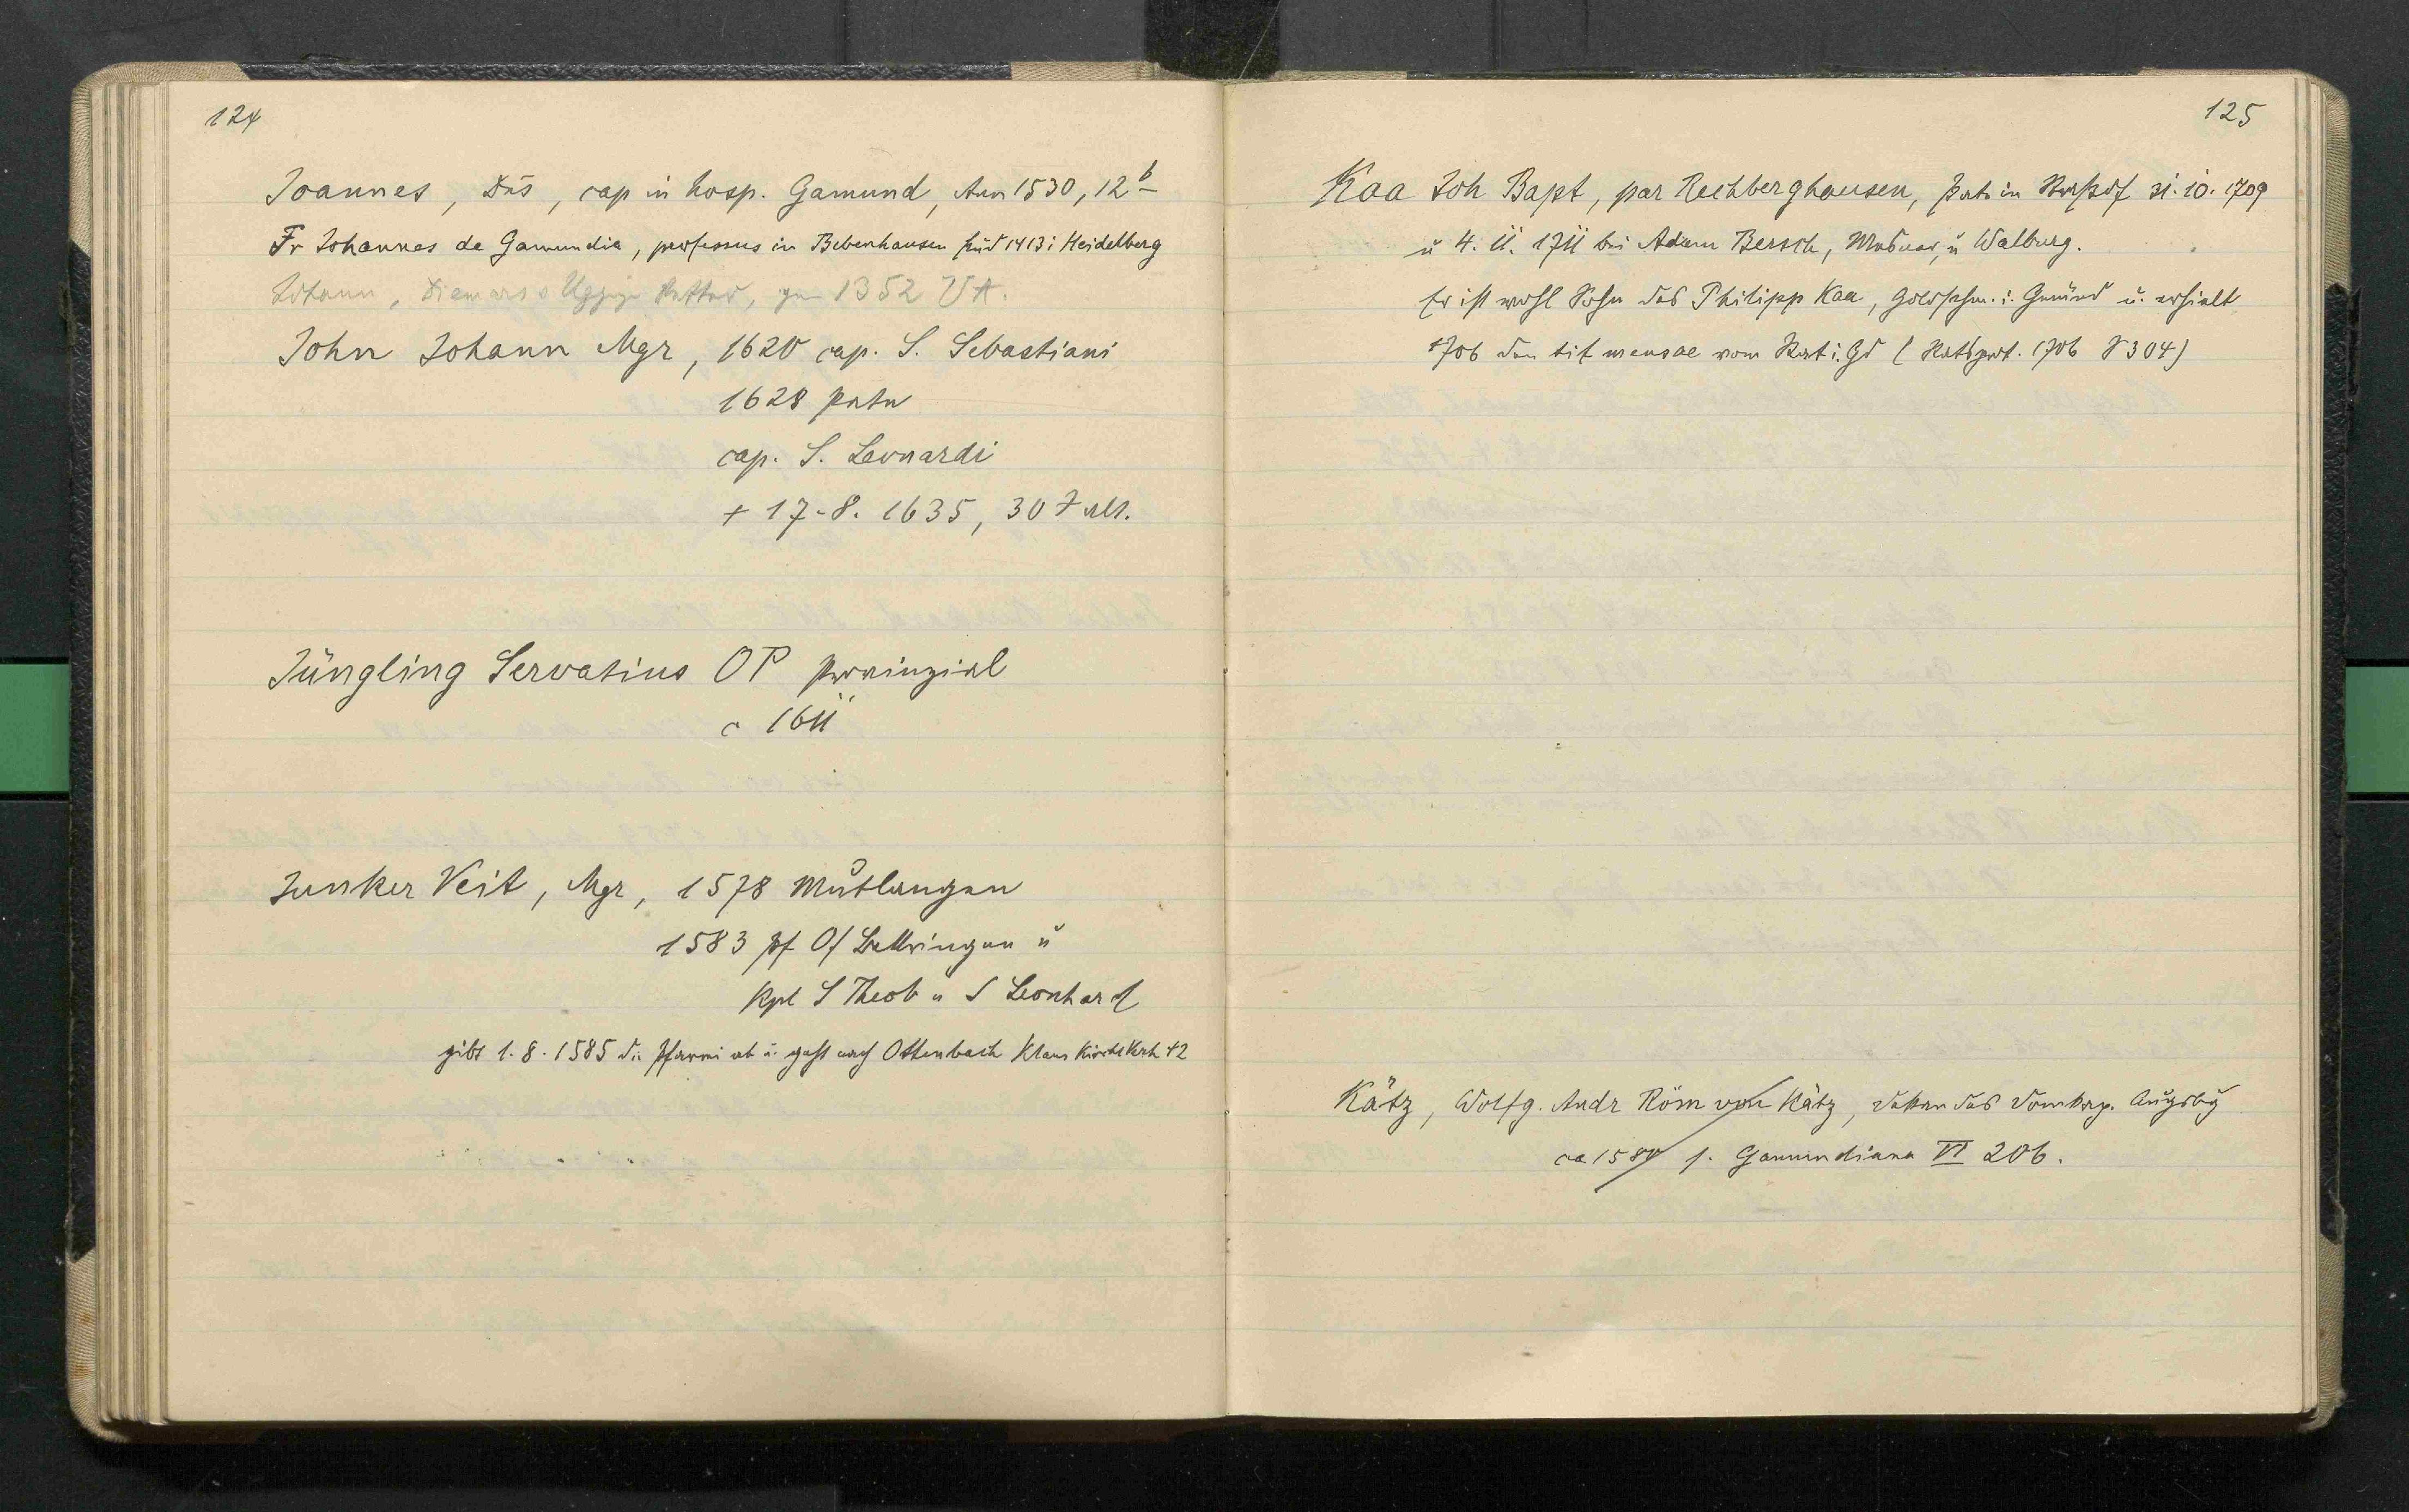 124
Joannes, Dns, cap in hosp. Gamund, Ann 1530, 12b
Fr Johannes de Gamundia, professus in Bebenhausen stud 1413 i Heidelberg
Johann, Diemars s 1352 UA.
John Johann Mgr, 1620 cap. S. Sebastiani
1628
cap. S. Leonardi
+ 17.8. 1635, 30 J alt.
Jüngling Servatius OP Provinzial
c 1611
Junker Veit, Mgr, 1578 Mutlangen
1583 Pf O/Bettringen u
Kpl S Theob u S Leonhard
gibt 1.8.1585 die Pfarrei ab u. geht nach Ottenbach Klaus Kirchl 42
125
Kaa Joh Bapt, par Rechberghausen, Pate in 31.10.1709
u 4.11.1711 bei Adam Bersch, u Walburg.
Er ist wohl Sohn des Philipp Kaa, Goldschm. i. Gmünd u. erhielt
1706 den tit mensae vom Rat i. Gd (Ratsprot. 1706 S 304)
Kätz, Wolfg. Andr Röm von Kätz, Dekan des Domkap. Augsbg
ca 1580 s. Gamundiana VI 206.